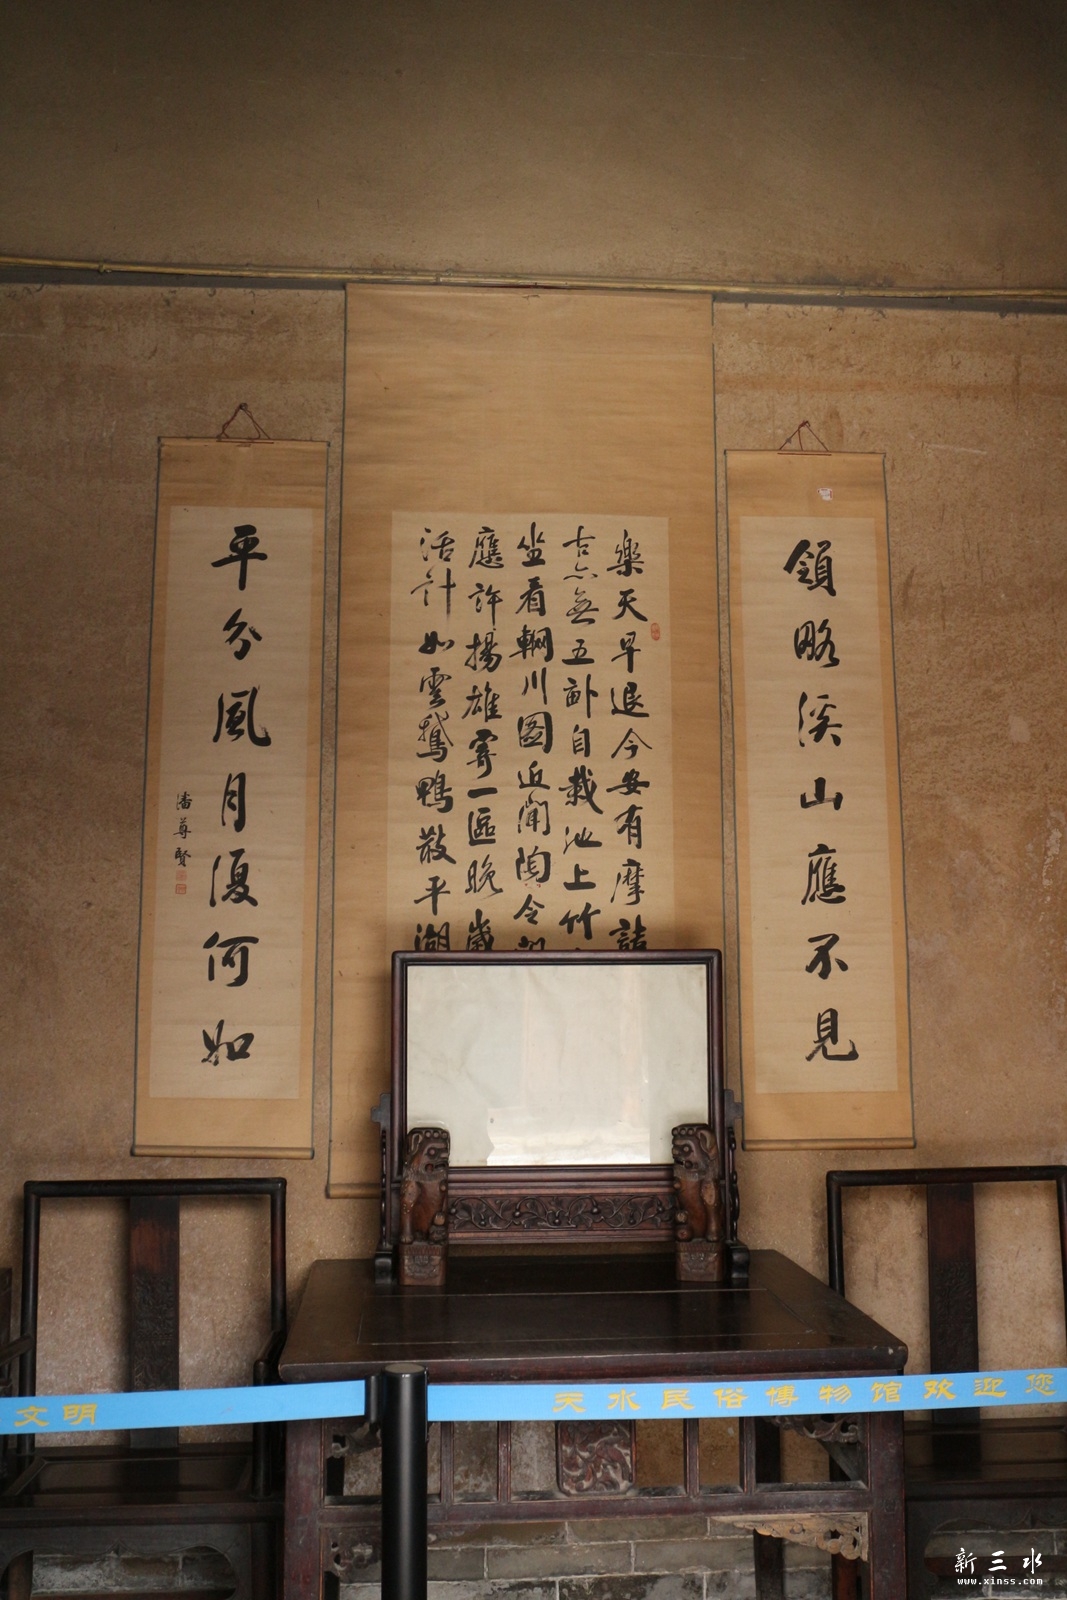 領略溪山應不見
樂天早退今安有摩詰
古亦無五畝自栽池上竹
坐看輞川圖近聞陶令
應許揚雄寄一區晚歲
活計如雲鵝鴨散平湖
平分風月復何如
潘尊賢
文明
天水民俗博物馆欢迎您
新三水
www.xinss.com